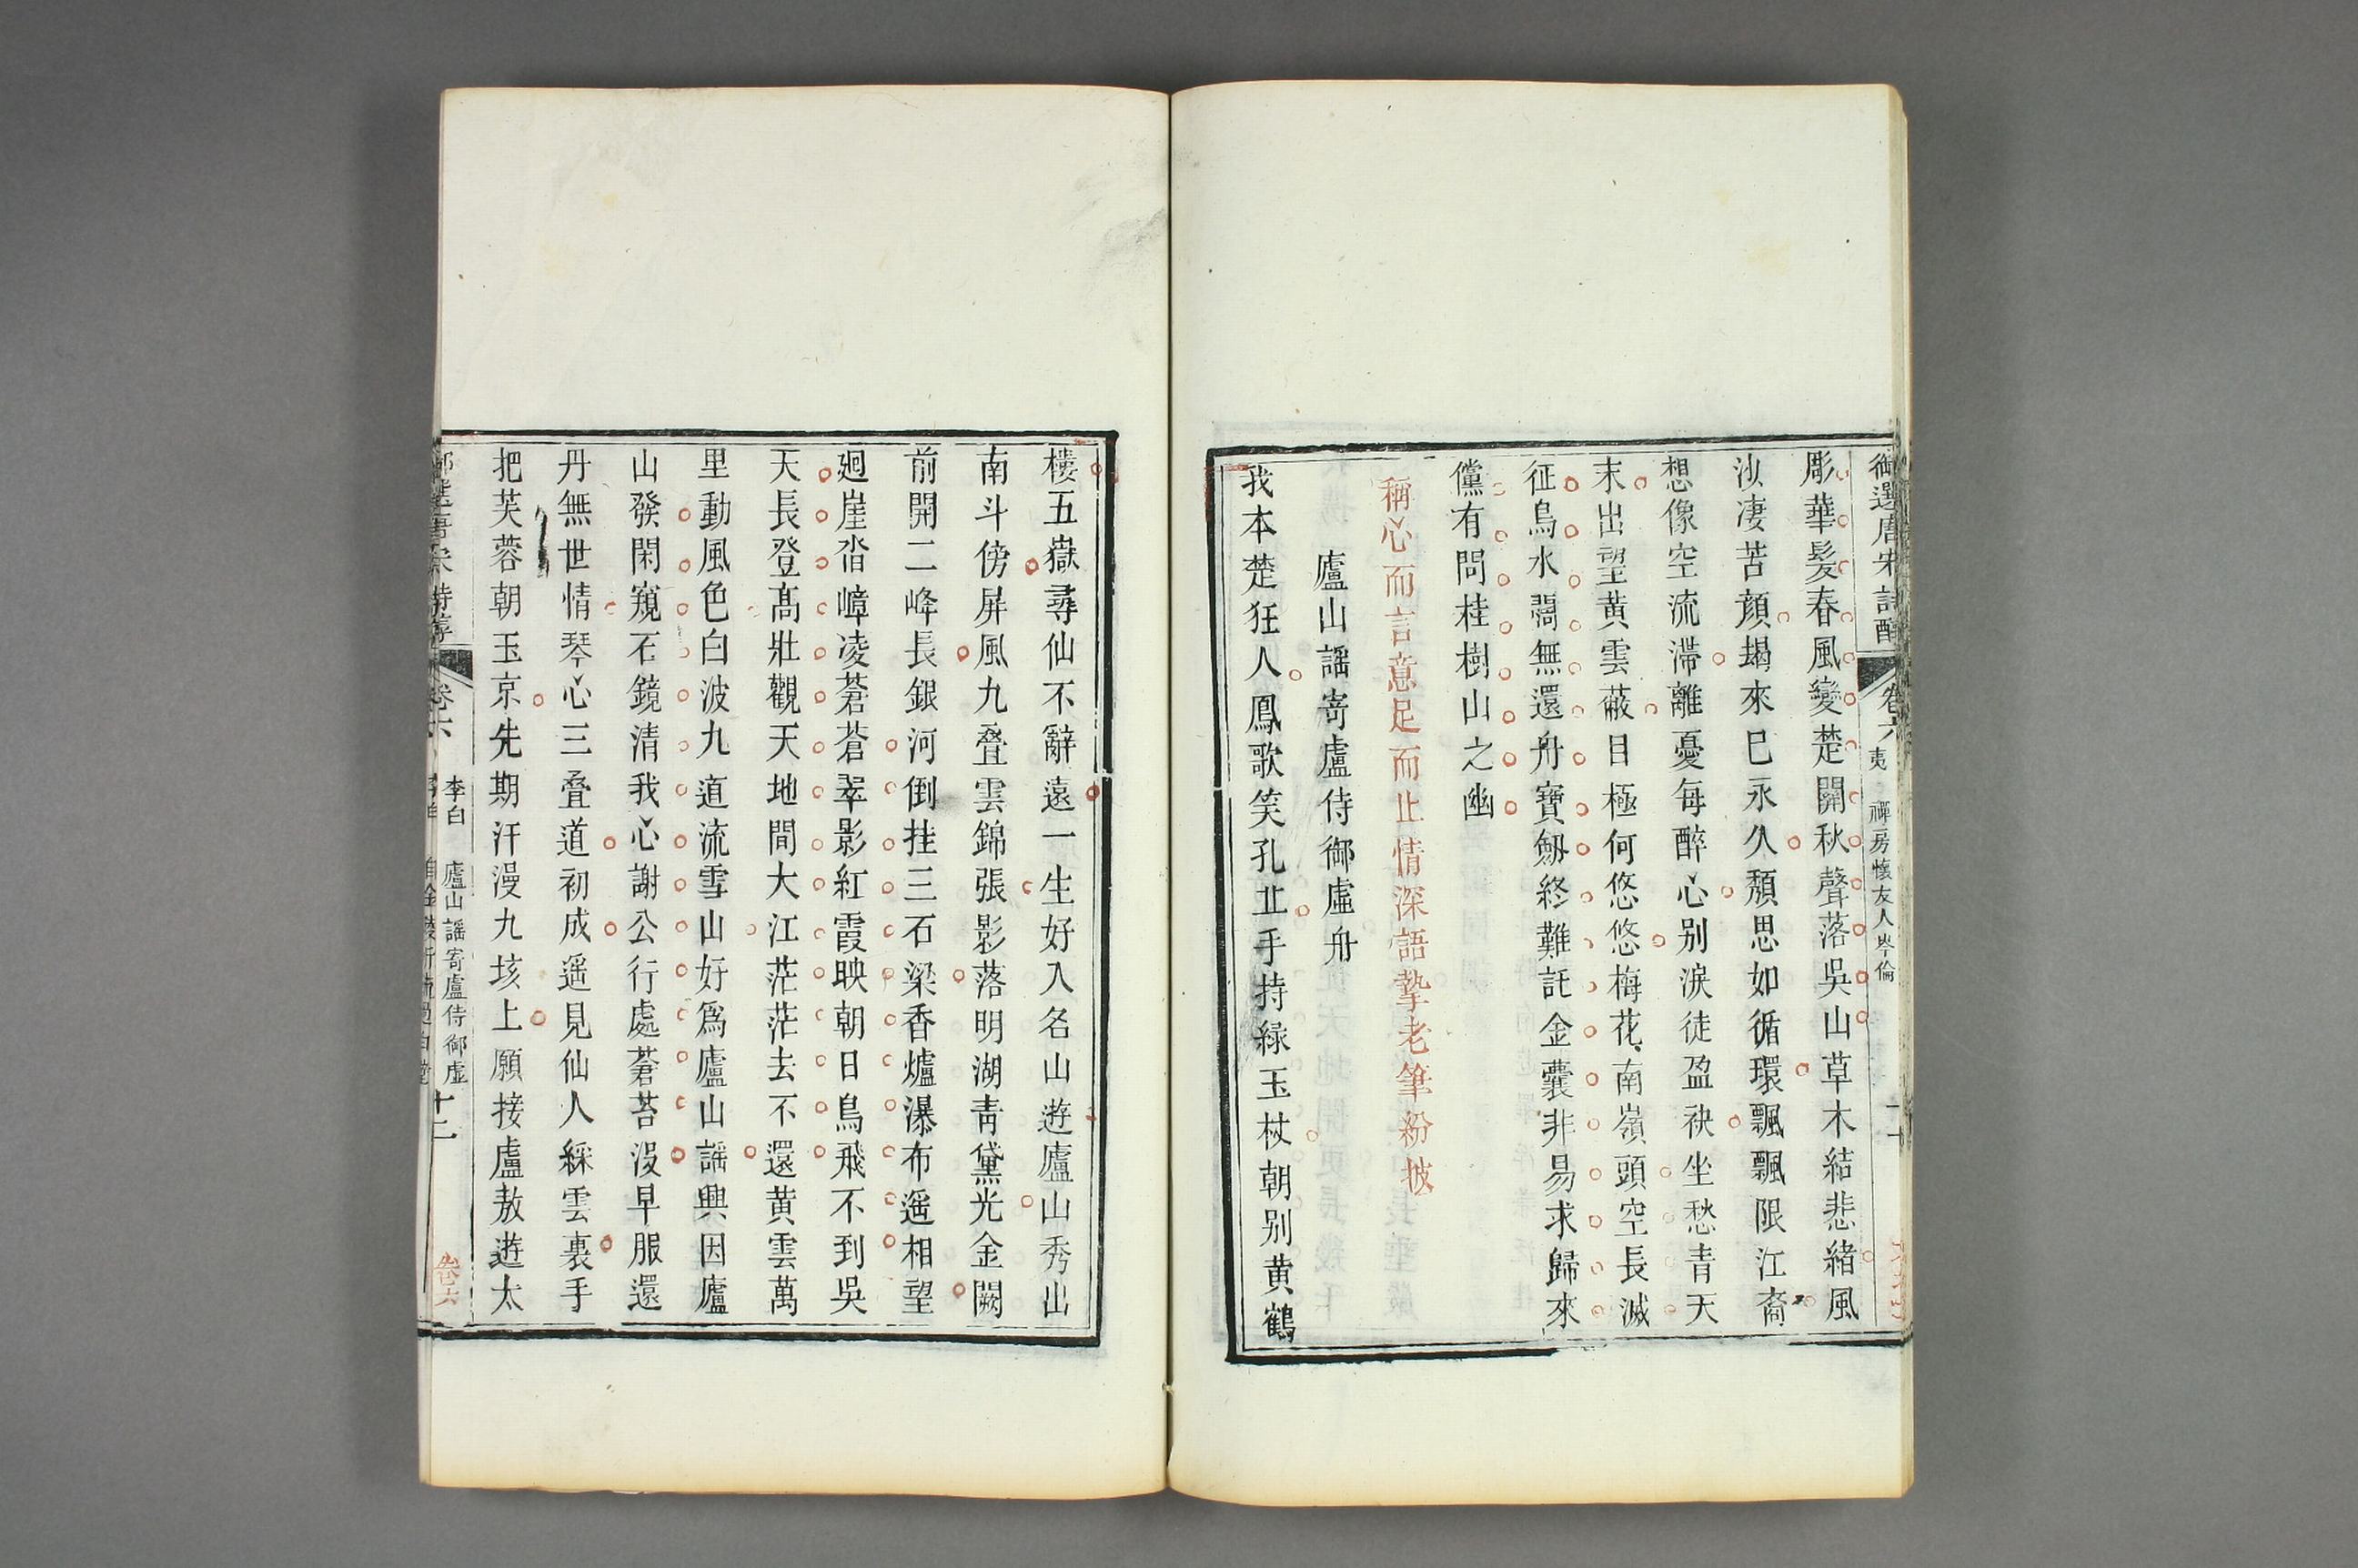 御選唐宋詩醇 卷六 夷 禪房懷友人岑倫
彫華髮春風變楚關秋聲落吳山草木結悲緒風
沙凄苦顏朅來已永久頹思如循環飄飄限江裔
想像空流滯離憂每醉心別淚徒盈袂坐愁青天
末出望黃雲蔽目極何悠悠梅花南嶺頭空長滅
征鳥水闊無還舟寶劒終難託金囊非易求歸來
儻有問桂樹山之幽
稱心而言意足而止情深語摯老筆紛披
廬山謠寄盧侍御虛舟
我本楚狂人鳳歌笑孔丘手持綠玉杖朝別黃鶴
樓五嶽尋仙不辭遠一生好入名山遊廬山秀出
南斗傍屏風九疊雲錦張影落明湖青黛光金闕
前開二峰長銀河倒挂三石梁香爐瀑布遙相望
廻崖沓嶂凌蒼蒼翠影紅霞映朝日鳥飛不到吳
天長登高壯觀天地間大江茫茫去不還黃雲萬
里動風色白波九道流雪山好爲廬山謠興因廬
山發閑窺石鏡清我心謝公行處蒼苔沒早服還
丹無世情琴心三疊道初成遙見仙人綵雲裏手
把芙蓉朝玉京先期汗漫九垓上願接盧敖遊太
卷六 李白 廬山謠寄盧侍御虛 十二
卷六